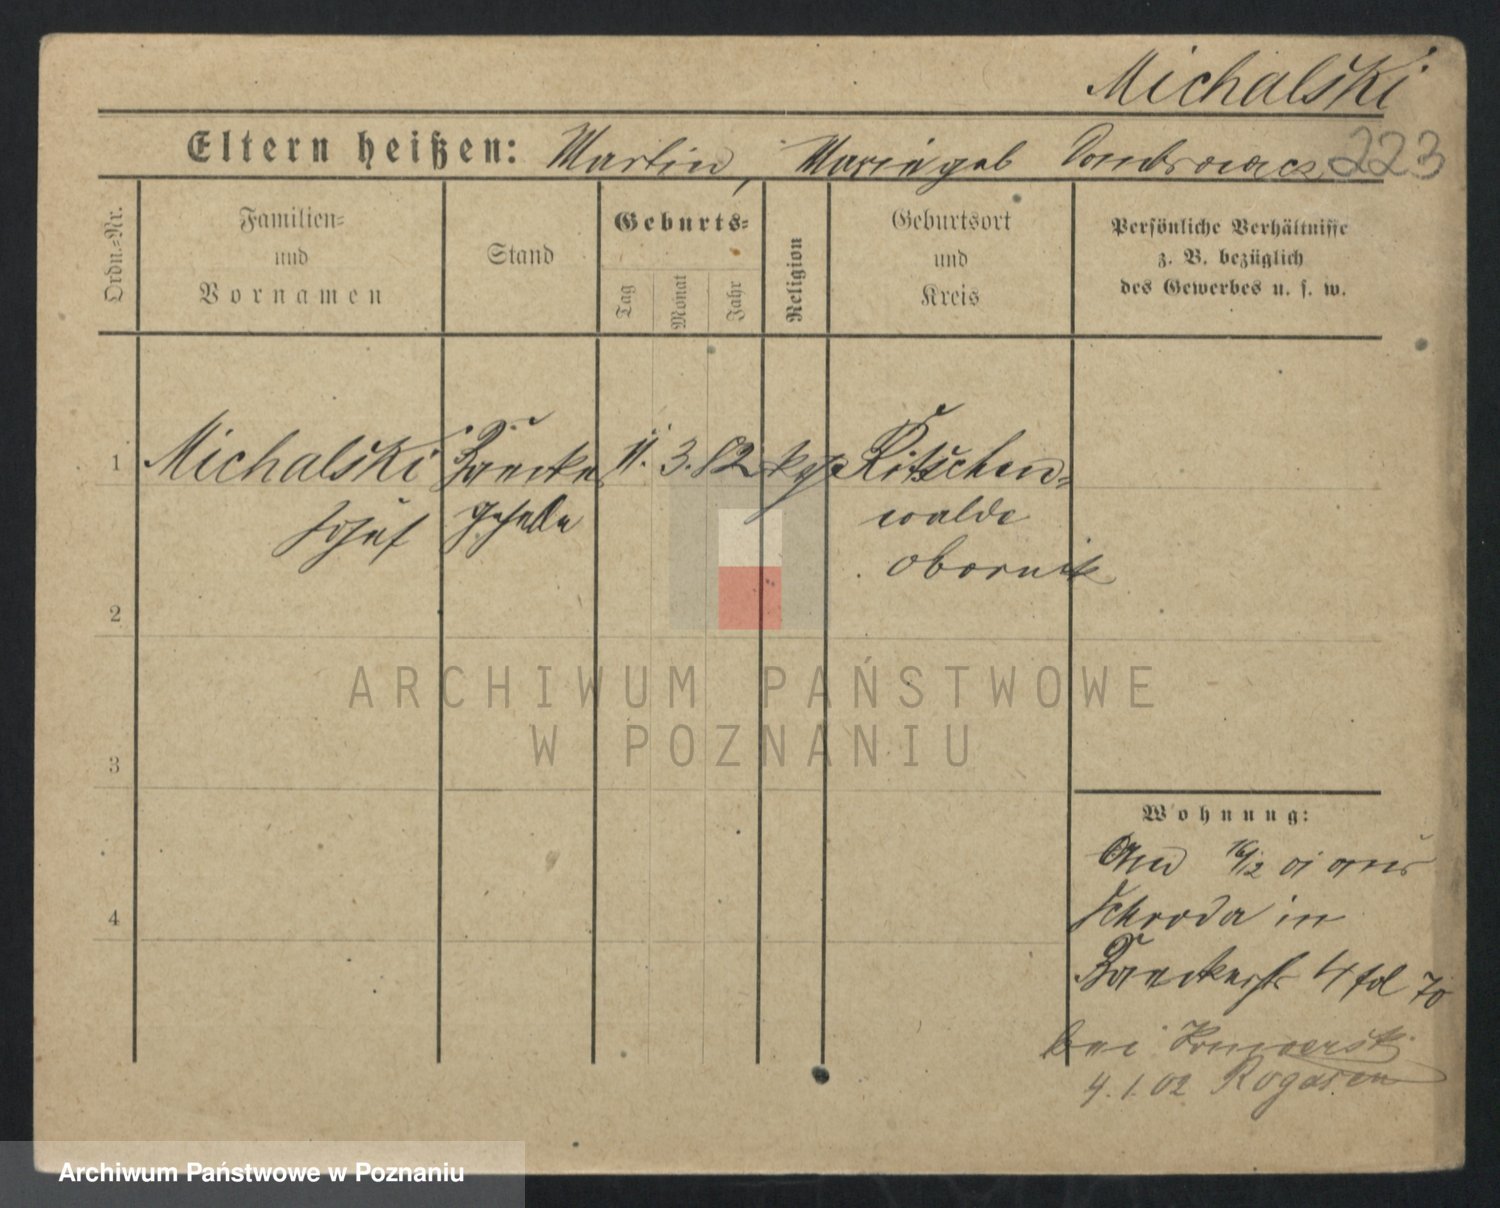 Michalski
Eltern heißen: Martin, Marie geb Dombrowicz 223
Ordn.=Nr.
Familien=
und
Vornamen
Stand
Geburts=
Tag
Monat
Jahr
Religion
Geburtsort
und
Kreis
Persönliche Verhältnisse
z. B. bezüglich
des Gewerbes u. s. w.
1 Michalski Baecker 11. 3. 82 kgl Ritschen=
Josef geselle walde
Obornik
2
3
4
ARCHIWUM PAŃSTWOWE
W POZNANIU
Wohnung:
16/2 01 aus
Schroda in
Baeckerstr 4
bei
4. 1. 02 Rogasen
Archiwum Państwowe w Poznaniu